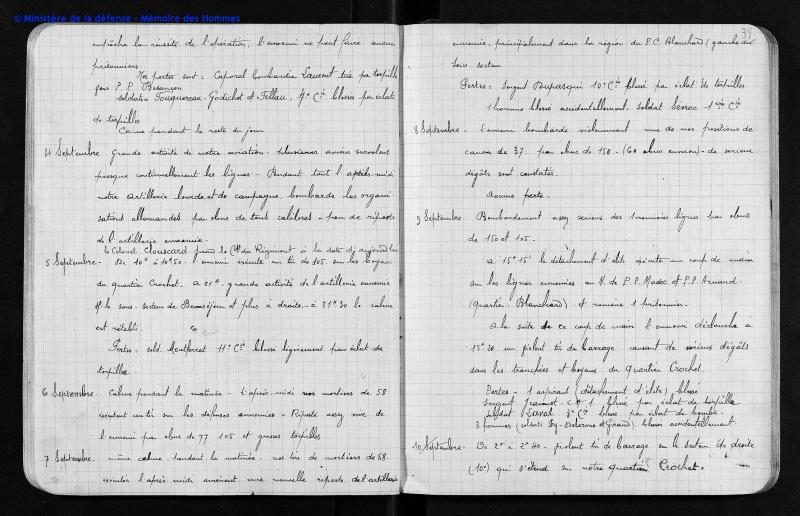 © Ministère de la défense - Mémoire des Hommes
empêcha la réussite de l'opération, l'ennemi ne peut faire aucun
prisonnier.
Nos pertes sont : Caporal bombardier Laurent tué par torpille
P. P. Besançon
soldats Fouquereau - Godichot et Fellau, 7e Cie blessés par éclats
de torpilles
Calme pendant le reste du jour
4 Septembre. Grande activité de notre aviation - plusieurs avions survolent
presque continuellement les lignes - Pendant tout l'après-midi
notre artillerie lourde et de campagne, bombarde les organi
sations allemandes par obus de tous calibres - peu de riposte
de l'artillerie ennemie.
le Colonel Clouscard prend le Ct du Régiment à la date d'aujourd'hui
5 Septembre. - De 10h à 10h50 - ennemi exécute un tir de 105 sur les boyaux
du quartier Crochet. à 21h - grande activité de l'artillerie ennemie
le sous-secteur de Beauséjour et plus à droite - à 21h30 le calme
est rétabli
Pertes : sold. Montferrat 11e Cie blessé légèrement par éclat de
torpille.
6 Septembre. Calme pendant la matinée - l'après-midi nos mortiers de 58
exécutent un tir sur les défenses ennemies - Riposte assez vive de
l'ennemi par obus de 77 105 et grosses torpilles
7 Septembre. même calme pendant la matinée. nos tirs de mortiers de 58.
exécutés l'après-midi amènent une nouvelle riposte de l'artillerie
39
ennemie, principalement dans la région du P.C. Blanchard (gauche du
sous secteur
Pertes : Sergent Dupasqui 10e Cie blessé par éclat de torpilles
1 homme blessé accidentellement, soldat 1ère Cie
8 Septembre - L'ennemi bombarde violemment une de nos positions de
canon de 37 par obus de 150 - (60 obus environ) - de sérieux
dégâts sont constatés.
Aucune perte.
9 Septembre - Bombardement assez sérieux des 1ères lignes par obus
de 150 et 105.
à 15h15 le détachement d'élite exécute un coup de main
sur les lignes ennemies au N. de P.P. Madec et P.P. Arnaud
(quartier Blanchard) et ramène 1 prisonnier.
à la suite de ce coup de main l'ennemi déclanche à
15h20 un violent tir de barrage causant de sérieux dégâts
dans les tranchées et boyaux du quartier Crochet.
Pertes - 1 aspirant (détachement d'élite) blessé
Sergent Jeannot blessé par éclat de torpille
soldat Laval 3e Cie blessé par éclat de bombe.
3 hommes (soldats et Girard) blessés accidentellement
10 Septembre - De 2h à 2h40 - violent tir de barrage sur le secteur de droite
(10e) qui s'étend sur notre quartier Crochet. -